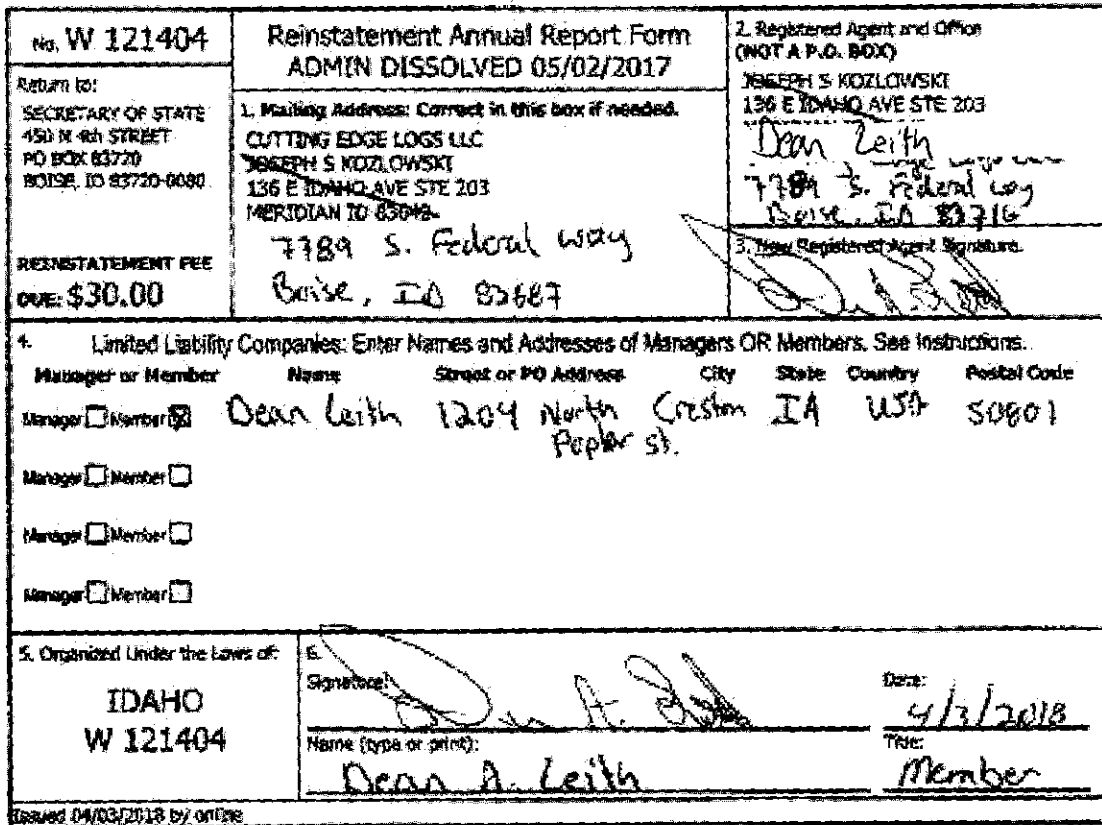 No. W 121404
Return to:
SECRETARY OF STATE
450 N 4th STREET
PO BOX 83720
BOISE, ID 83720-0080
REINSTATEMENT FEE
DUE: $30.00
Reinstatement Annual Report Form
ADMIN DISSOLVED 05/02/2017
1. Mailing Address: Correct in this box if needed.
CUTTING EDGE LOGS LLC
JOSEPH S KOZLOWSKI
136 E IDAHO AVE STE 203
MERIDIAN ID
7789 S. Federal way
Boise, ID 83687
2. Registered Agent and Office
(NOT A P.O. BOX)
JOSEPH S KOZLOWSKI
136 E IDAHO AVE STE 203
Dean Leith
7789 S. Federal way
Boise, ID 83716
3. New Registered Agent Signature.
4. Limited Liability Companies: Enter Names and Addresses of Managers OR Members. See Instructions.
Manager or Member Name Street or PO Address City State Country Postal Code
Manager Member Dean Leith 1204 North Creston IA USA 50801
Poplar St.
Manager Member
Manager Member
Manager Member
5. Organized Under the Laws of:
IDAHO
W 121404
6.
Signature:
Date:
4/3/2018
Name (type or print):
Dean A. Leith
Title:
Member
Issued 04/03/2018 by online